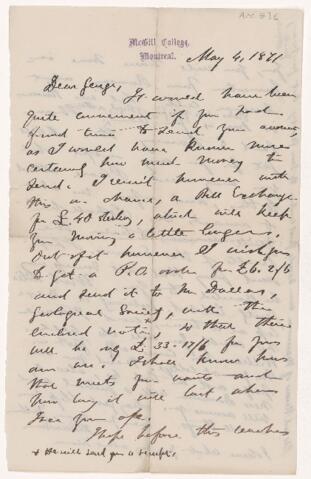 McGill College,
Montreal.
May 4, 1871
Dear George,
It would have been
quite convenient if you had
found time to send your account,
as I would have known more
certainly how much money to
send. I remit however with
this a Bill Exchange
for £40 sterling, which will keep
you moving a little longer.
Out of it however I wish you
to get a P.O. order for £6. 2/6
and send it to Mr Dallas,
Geological Society, with the
enclosed note, + so that there
will be only £33-17/6 for your
own use. I shall know how
that meets your wants and
how long it will last, when
I see you
I hope before this reaches
+ He will send you a receipt.